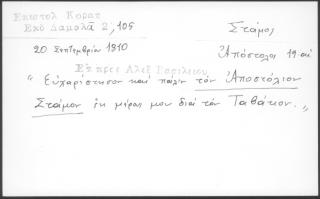 Επιστολ Κοραη
Εκδ Δαμαλα 2, 105
Στάμος
20 Σεπτεμβρίου 1810
Ἀπόστολος
Επ προς Αλεξ Βασιλειου
" Εὐχαρίστησον καὶ πάλιν τὸν Ἀποστόλιον
Στάμον ἐκ μέρους μου διὰ τὸν Ταβάκον. „